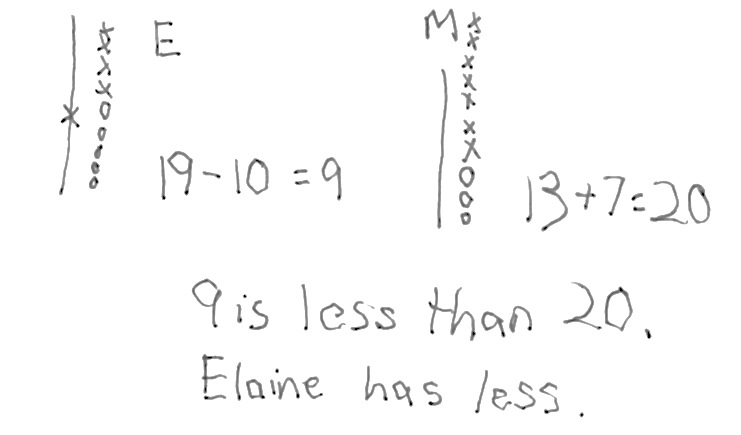 E
M
19-10=9
13+7=20
9 is less than 20.
Elaine has less.